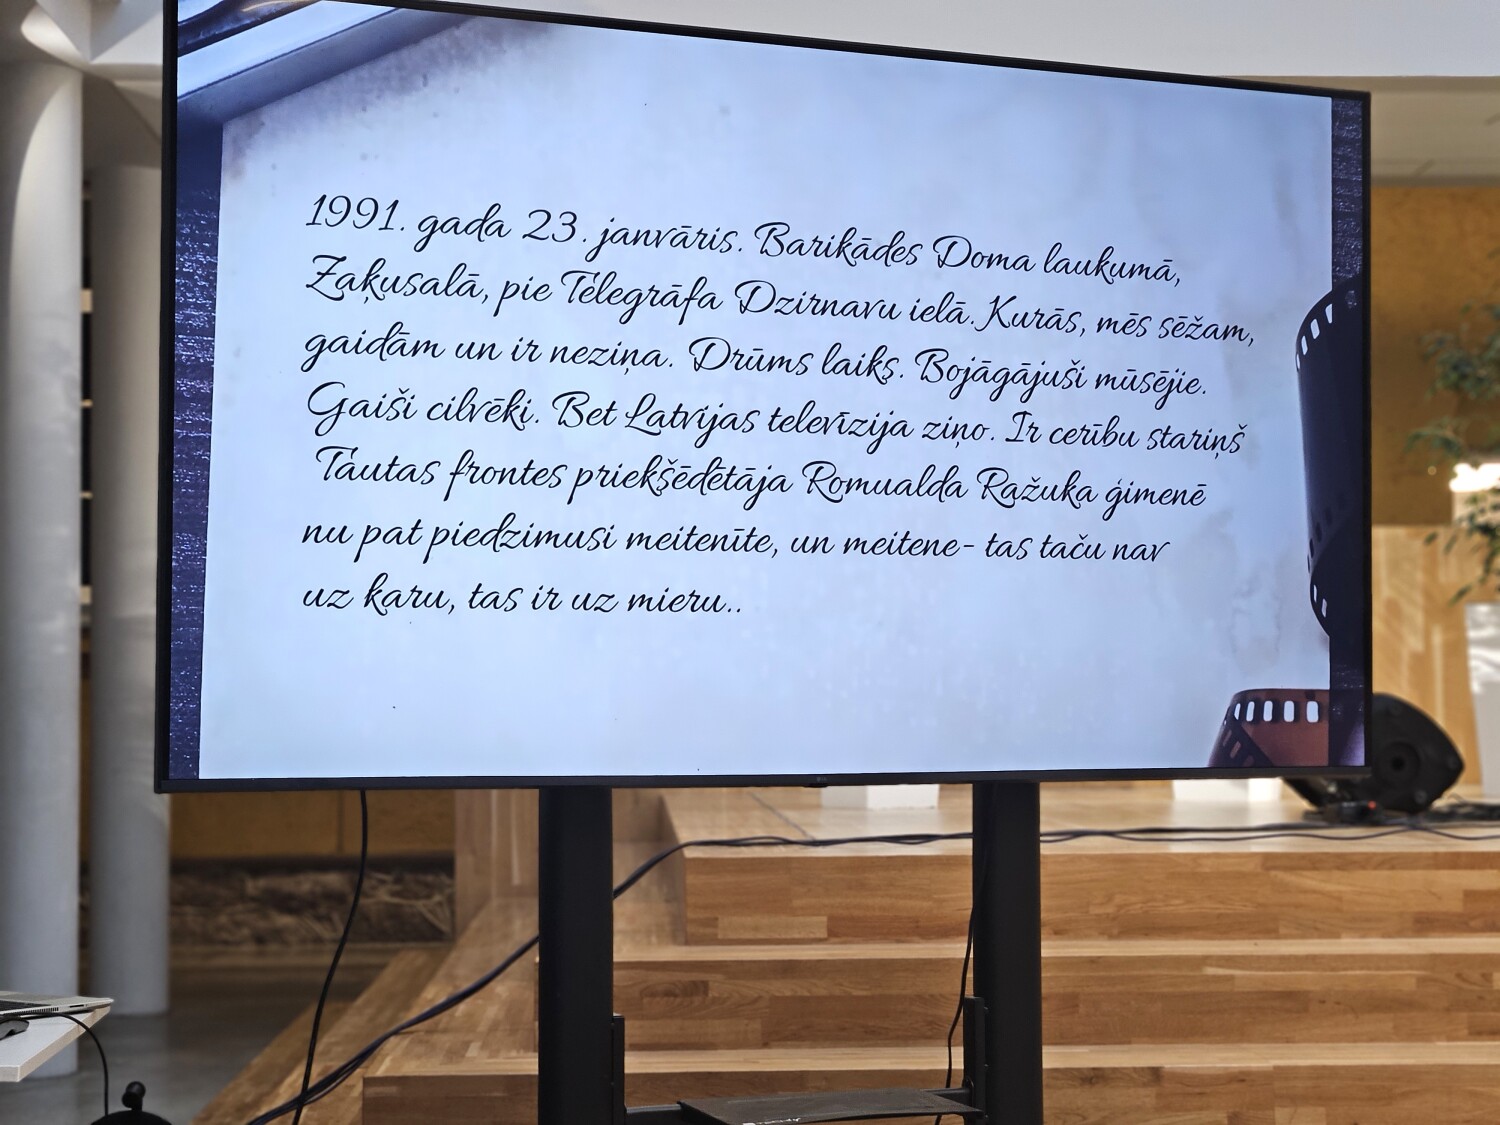 1991. gada 23. janvāris. Barikādes Doma laukumā,
Zaķusalā, pie Telegrāfa Dzirnavu ielā. Kurās, mēs sēžam,
gaidām un ir neziņa. Drūms laiks. Bojāgājuši mūsējie.
Gaiši cilvēki. Bet Latvijas televīzija ziņo. Ir cerību stariņš
Tautas frontes priekšēdētāja Romualda Ražuka ģimenē
nu pat piedzimusi meitenīte, un meitene- tas taču nav
uz karu, tas ir uz mieru..